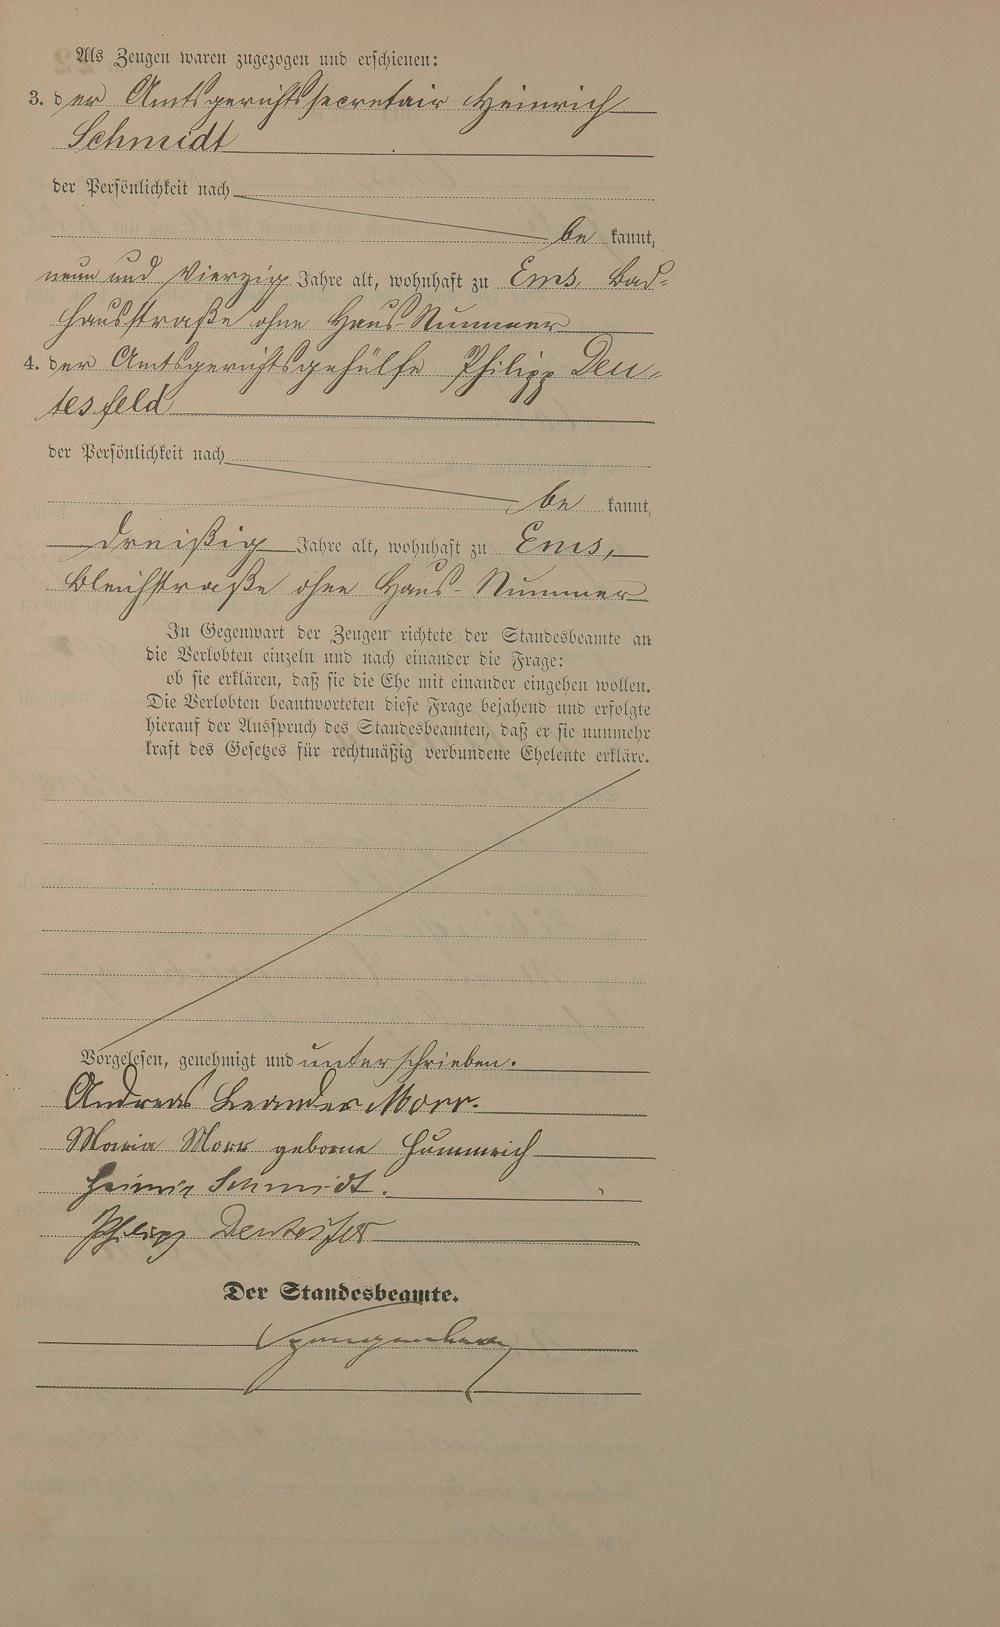 Als Zeugen waren zugezogen und erschienen:
3. der Amtsgerichtssecretair Heinrich
Schmidt
der Persönlichkeit nach
be kannt,
neun und vierzig Jahre alt, wohnhaft zu Ems, Bad-
hausstraße ohne Haus-Nummer
4. der Amtsgerichtsgehülfe Philipp Deu-
tesfeld
der Persönlichkeit nach
be kannt,
dreißig Jahre alt, wohnhaft zu Ems,
Bleichstraße ohne Haus-Nummer
In Gegenwart der Zeugen richtete der Standesbeamte an
die Verlobten einzeln und nach einander die Frage:
ob sie erklären, daß sie die Ehe mit einander eingehen wollen.
Die Verlobten beantworteten diese Frage bejahend und erfolgte
hierauf der Ausspruch des Standesbeamten, daß er sie nunmehr
kraft des Gesetzes für rechtmäßig verbundene Eheleute erkläre.
Vorgelesen, genehmigt und unterschrieben.
Andreas Leander Morr.
Maria Morr geborne Hümmerich
Heinrich Schmidt.
Philipp Deutesfeld
Der Standesbeamte.